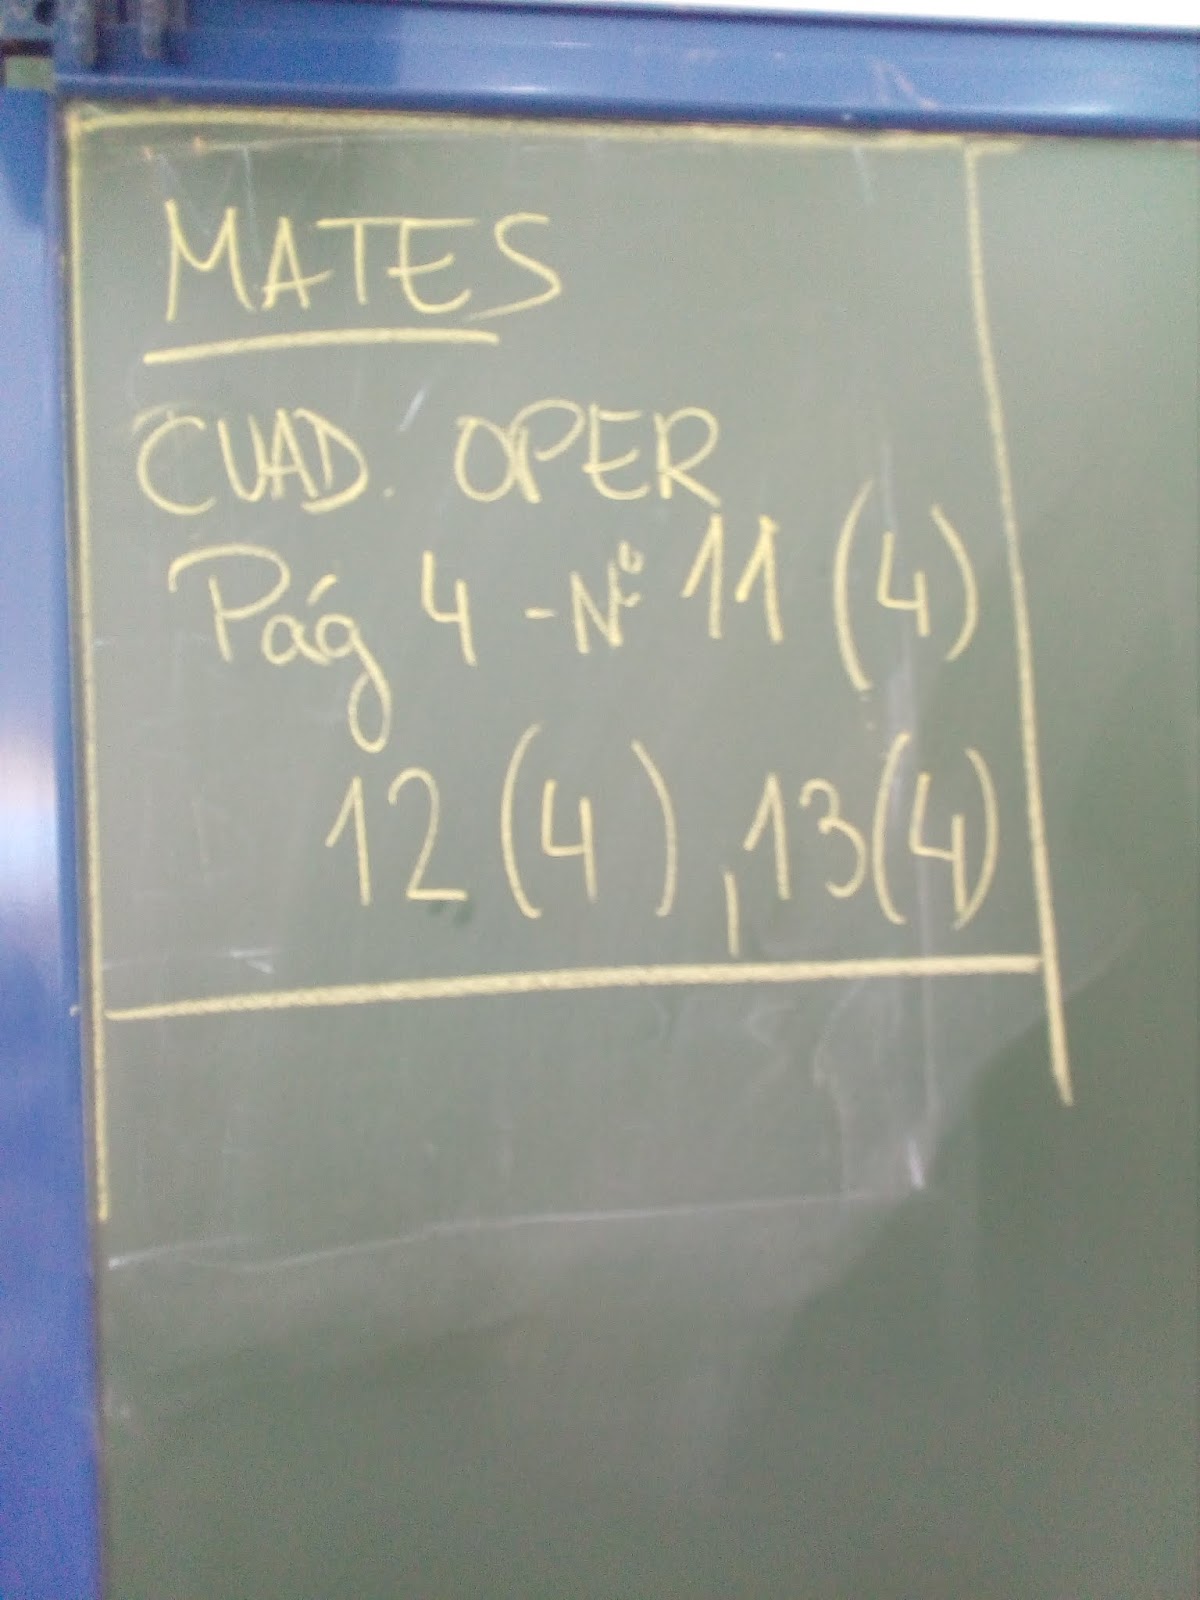 MATES
CUAD. OPER
Pág 4 - Nº 11 (4)
12 (4), 13 (4)